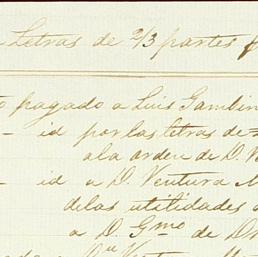 Letras de 2/3 partes
pagado a Luis Gambin
id por las letras de
a la orden de D. V
id a D. Ventura M
de las utilidades
a D. Gmo de Dr